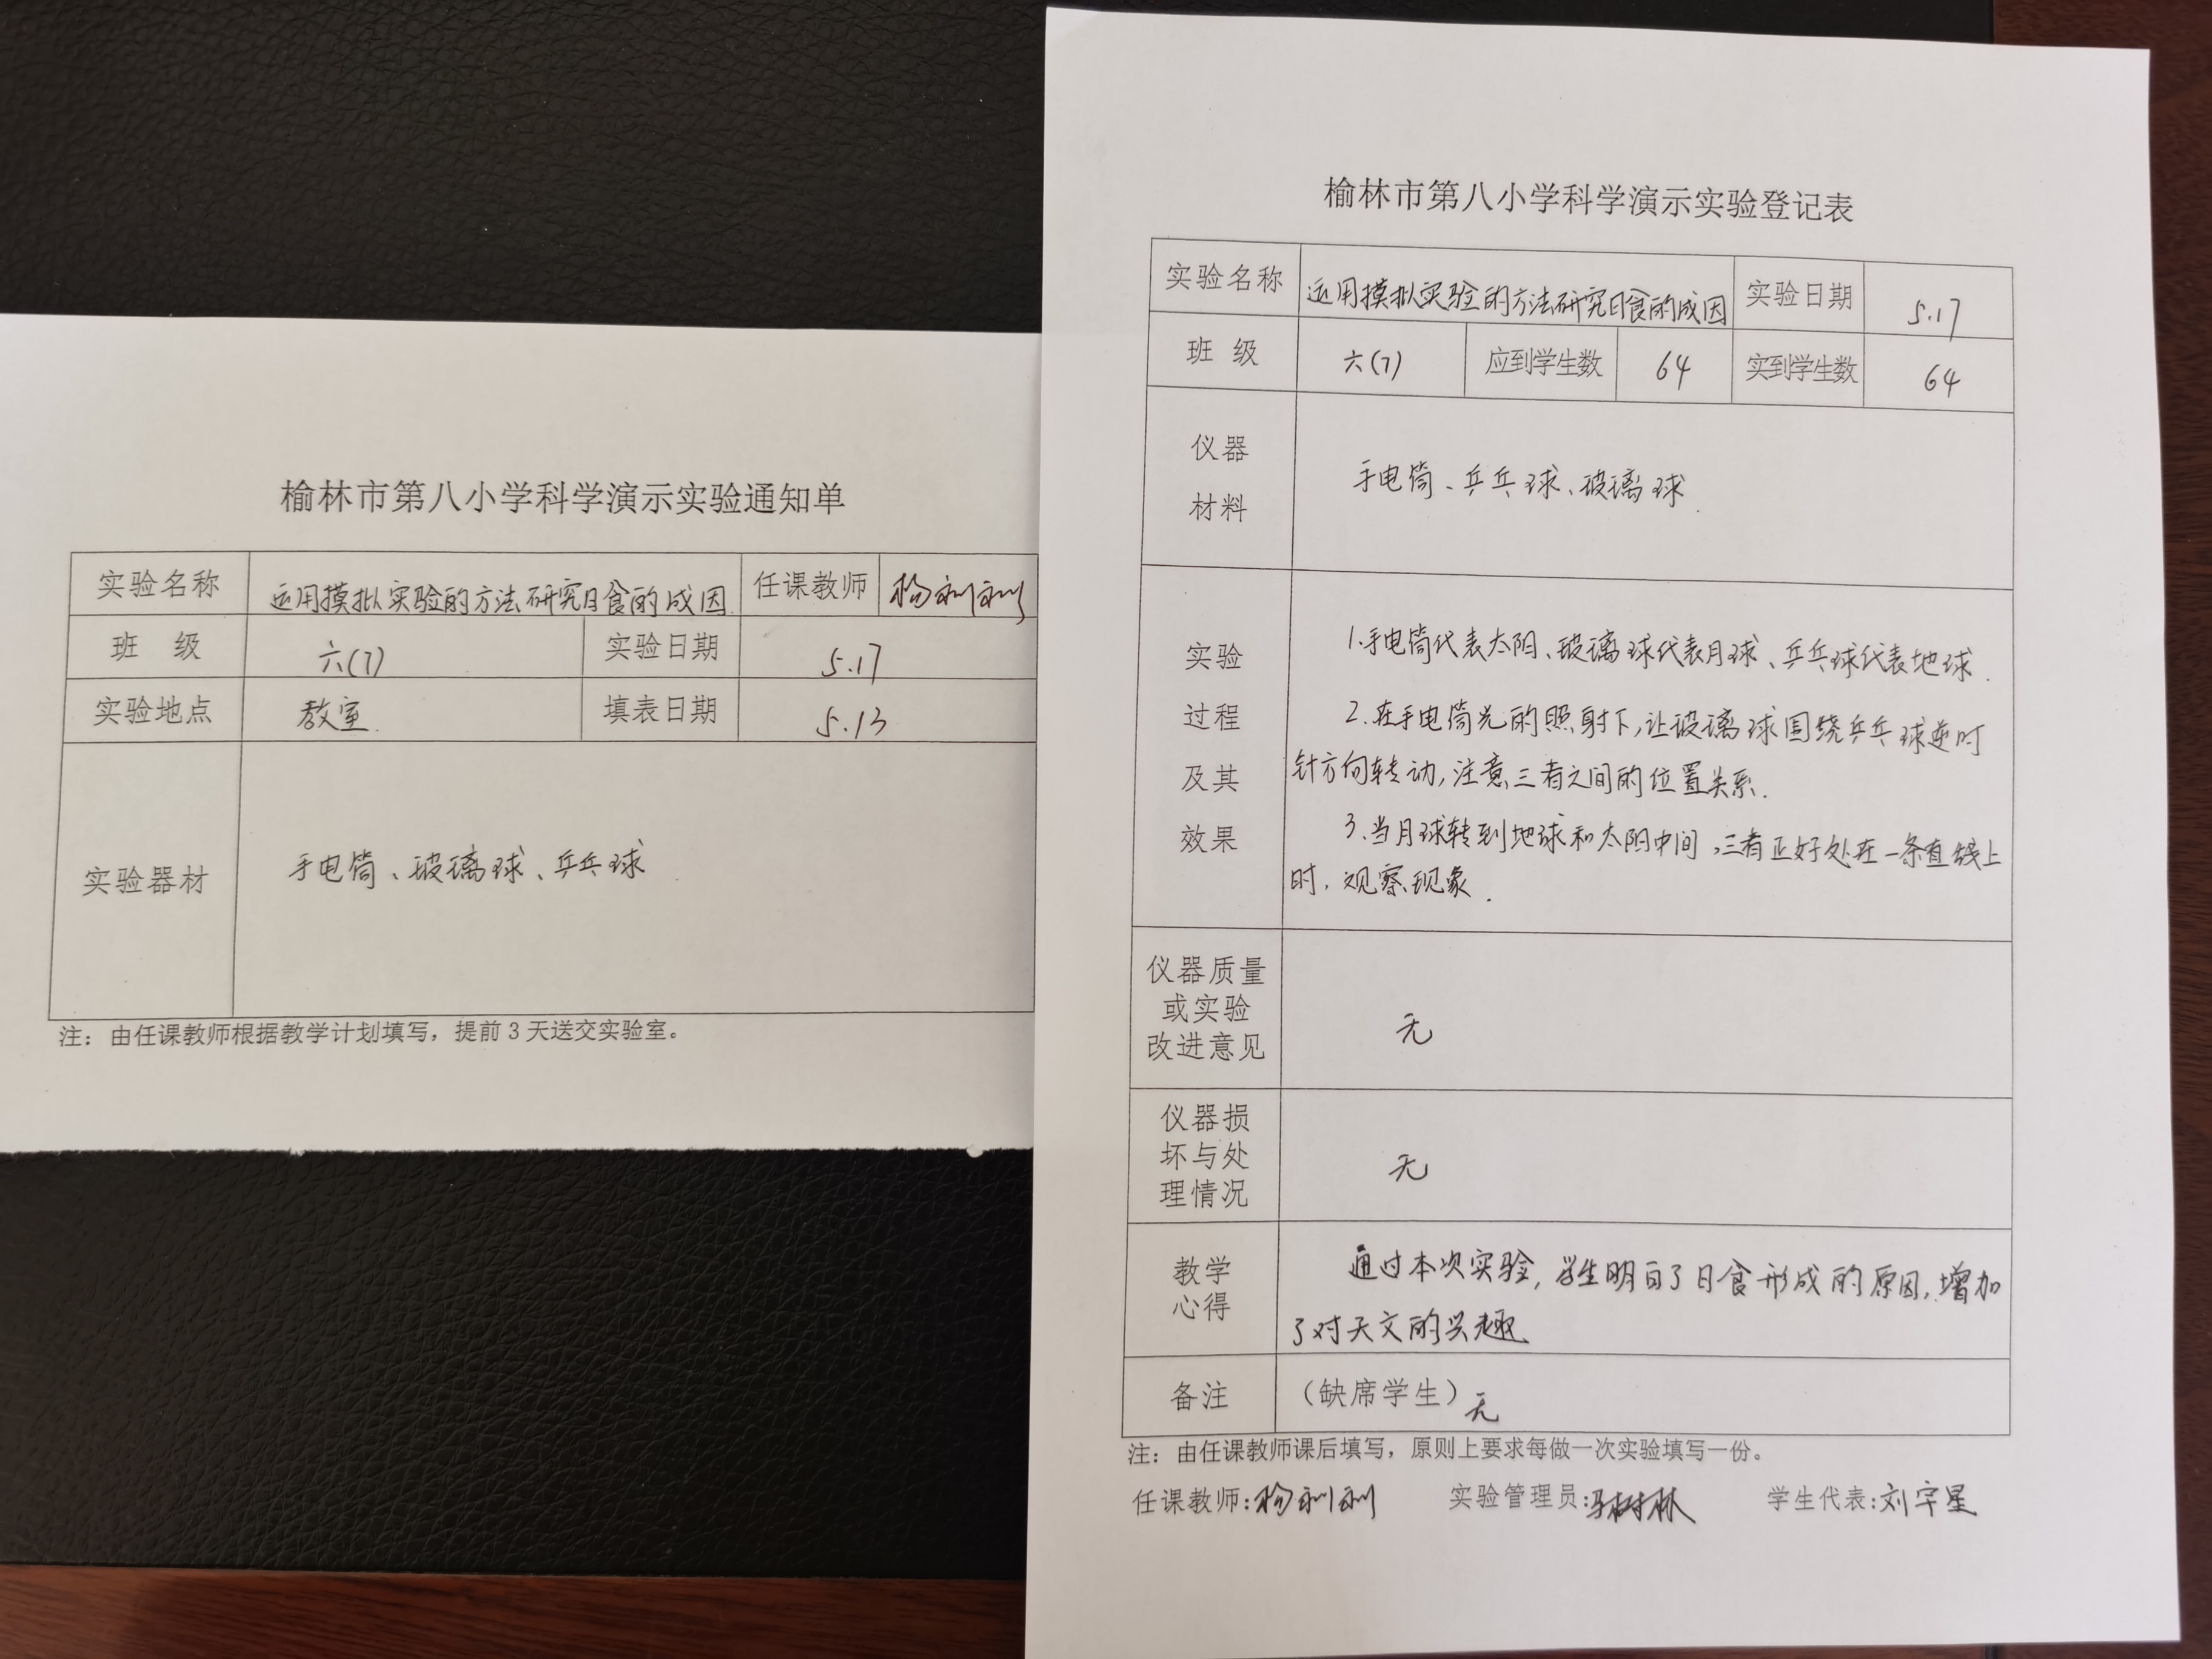 榆林市第八小学科学演示实验通知单
实验名称 运用摸拟实验的方法研究日食的成因 任课教师 杨利利
班 级 六(7) 实验日期 5.17
实验地点 教室 填表日期 5.13
实验器材 手电筒、玻璃球、乒乓球
注：由任课教师根据教学计划填写，提前3天送交实验室。
榆林市第八小学科学演示实验登记表
实验名称 运用摸拟实验的方法研究日食的成因 实验日期 5.17
班 级 六(7) 应到学生数 64 实到学生数 64
仪器
材料
手电筒、乒乓球、玻璃球.
实验
过程
及其
效果
1.手电筒代表太阳、玻璃球代表月球、乒乓球代表地球.
2.在手电筒光的照射下,让玻璃球围绕乒乓球逆时
针方向转动,注意三者之间的位置关系.
3.当月球转到地球和太阳中间,三者正好处在一条直线上
时,观察现象.
仪器质量
或实验
改进意见
无
仪器损
坏与处
理情况
无
教学
心得
通过本次实验,学生明白了日食形成的原因,增加
了对天文的兴趣.
备注 （缺席学生）无
注：由任课教师课后填写，原则上要求每做一次实验填写一份。
任课教师:杨利利 实验管理员: 学生代表:刘宇星